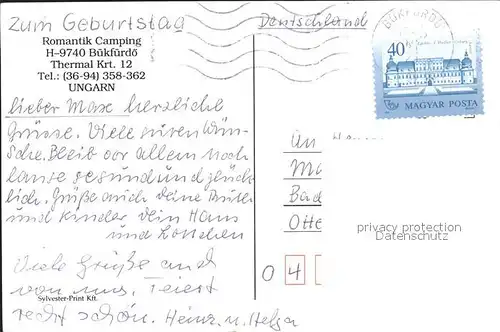 Zum Geburtstag
Deutschland
BÜKFÜRDŐ
Romantik Camping
H-9740 Bükfürdő
Thermal Krt. 12
Tel.: (36-94) 358-362
UNGARN
40
MAGYAR POSTA
lieber Max herzliche
Grüsse. Viele Wün-
sche. Bleib vor allem noch
lange gesund und glück-
lich. Grüße auch Deine
und Kinder Dein Hans
und Lottchen
Viele Grüße auch
von uns, feiert
recht schön. Heinz u. Helga
An
Ma
Bad
Otte
0 4
privacy protection
Datenschutz
Sylvester-Print Kft.